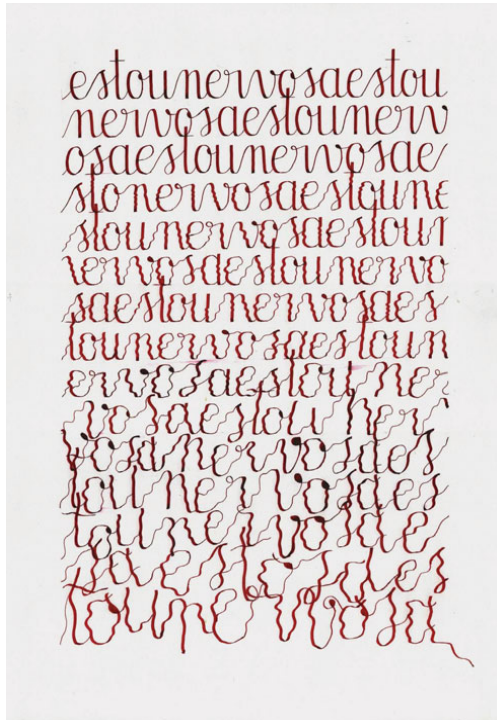 estounervosaestou
nervosaestounerv
osaestounervosae
stonervosaestoune
stounervosaestour
nervosaestounervo
saestounervosaes
tounervosaestoun
ervosaestouner
vosaestouner
vosanervosaes
tounervosaes
tounervosae
saestosaes
tounervosa